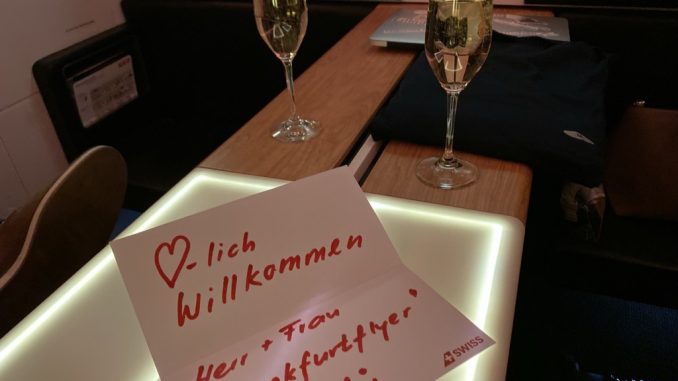 ♡-lich
Willkommen
Herr + Frau
kfurtflyer'
SWISS